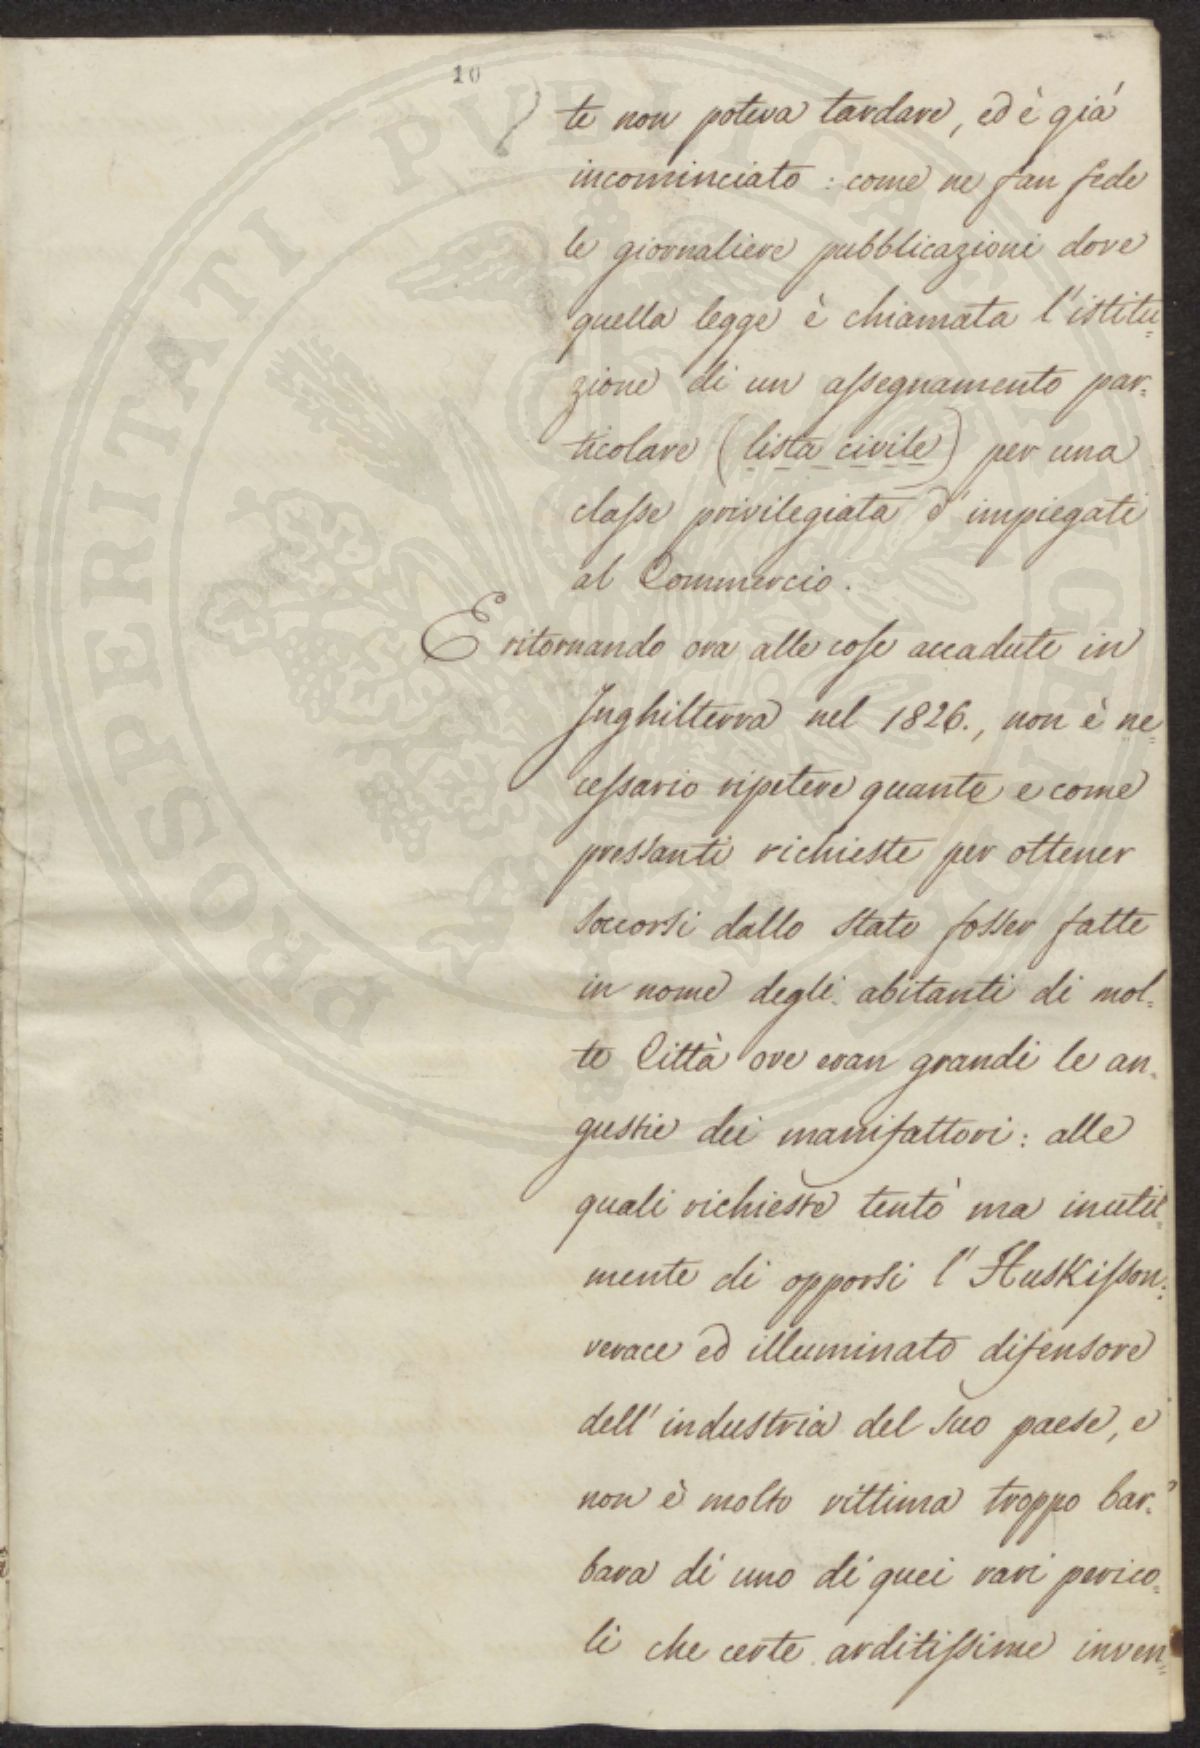 10
te non poteva tardare, ed è già
incominciato: come ne fan fede
le giornaliere pubblicazioni dove
quella legge è chiamata l'istitu=
zione di un assegnamento par=
ticolare (lista civile) per una
classe privilegiata d'impiegati
al Commercio.
E ritornando ora alle cose accadute in
Inghilterra nel 1826., non è ne=
cessario ripetere quante e come
pressanti richieste per ottener
soccorsi dallo stato fosser fatte
in nome degli abitanti di mol=
te Città ove eran grandi le an=
gustie dei manifattori: alle
quali richieste tentò ma inutil=
mente di opporsi l'Huskisson:
verace ed illuminato difensore
dell'industria del suo paese, e
non è molto vittima troppo bar=
bara di uno di quei rari perico=
li che certe arditissime inven=
PROSPERITATI PVBLICAE AVGENDAE